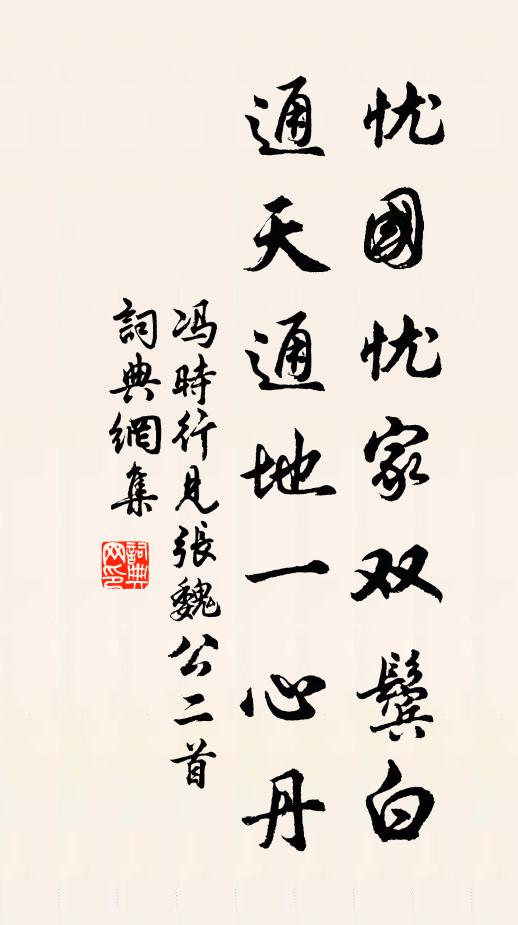 忧國忧家双鬓白
通天通地一心丹
冯時行見張魏公二首
詞典網集
詞典网印